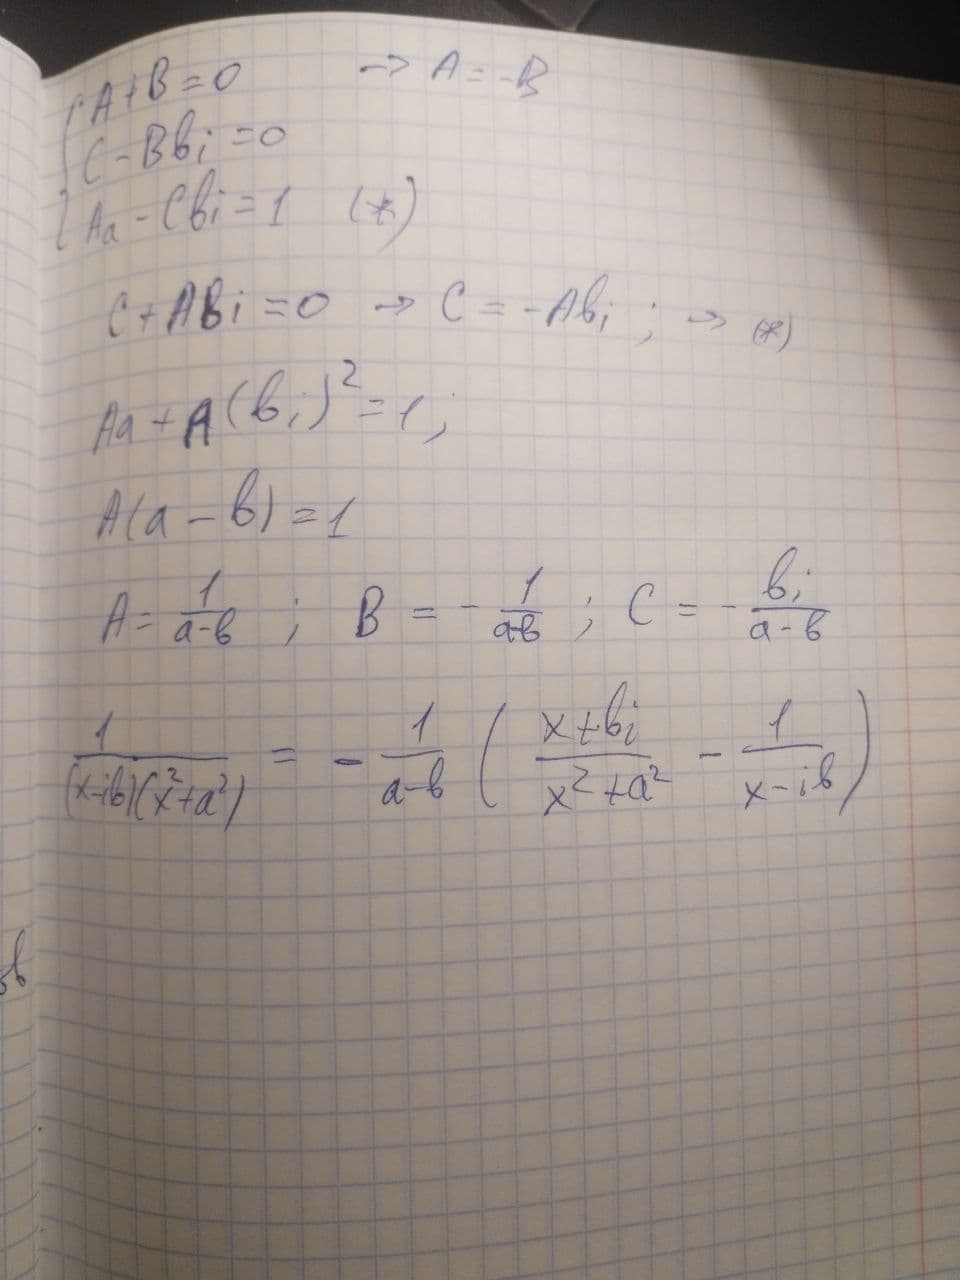 A+B=0 → A=-B
C-Bbi=0
Aa-Cbi=1 (*)
C+ABi=0 → C=-Abi; → (*)
Aa+A(bi)²=1;
A(a-b)=1
A=1/(a-b); B=-1/(a-b); C=-bi/(a-b)
1/((x-ib)(x²+a²)) = -1/(a-b) ((x+bi)/(x²+a²) - 1/(x-ib))